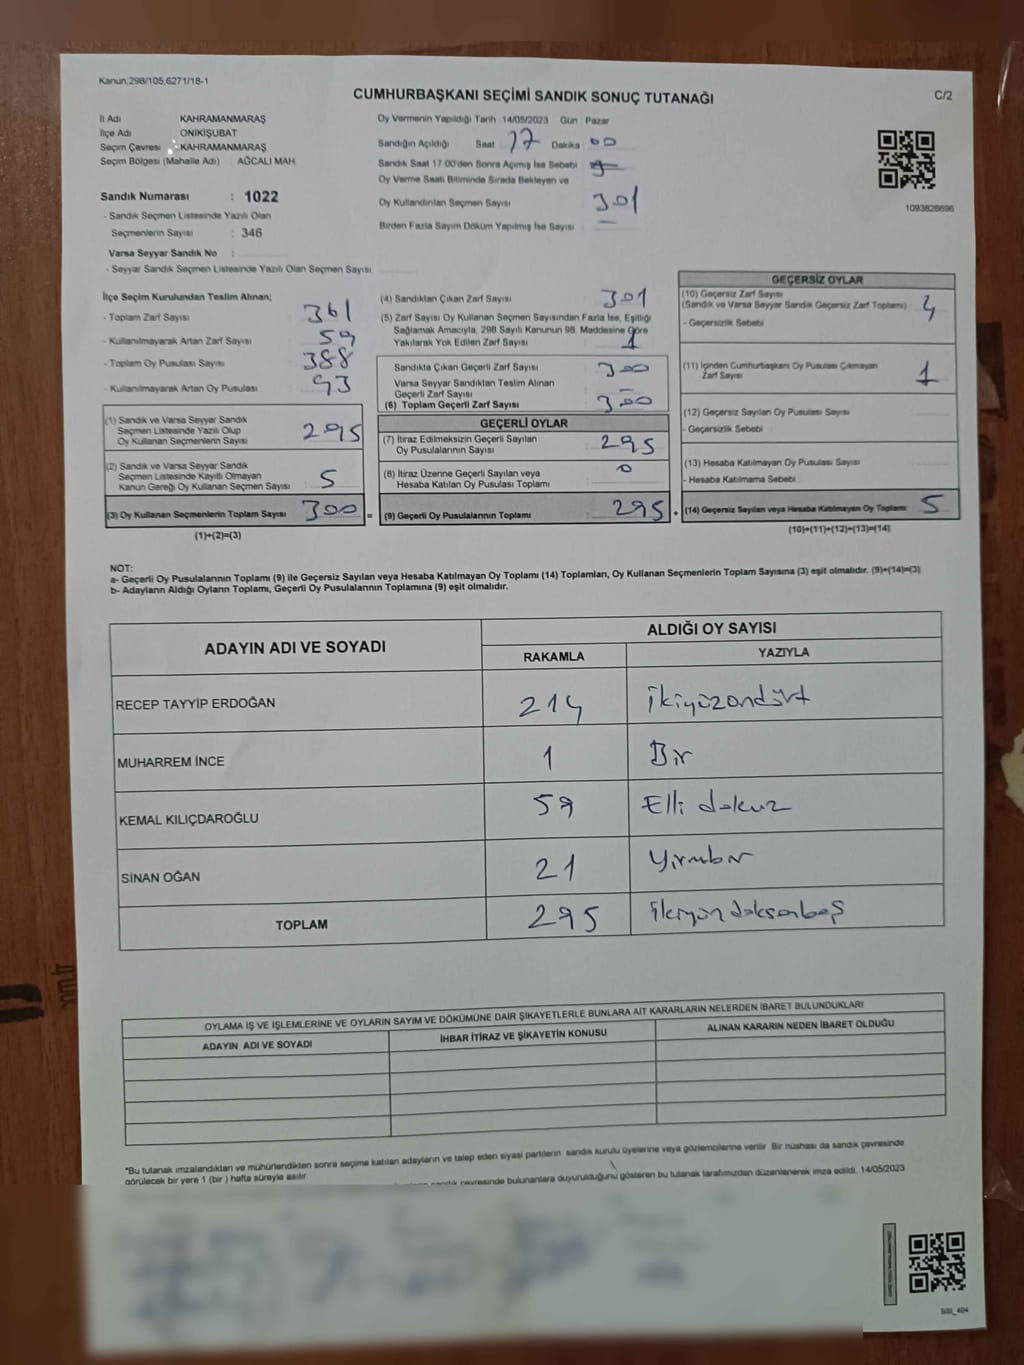 Kanun,298/105,6271/18-1
CUMHURBAŞKANI SEÇİMİ SANDIK SONUÇ TUTANAĞI
C/2
İl Adı KAHRAMANMARAŞ
İlçe Adı ONİKİŞUBAT
Seçim Çevresi : KAHRAMANMARAŞ
Seçim Bölgesi (Mahalle Adı) : AĞCALI MAH.
Sandık Numarası : 1022
- Sandık Seçmen Listesinde Yazılı Olan
Seçmenlerin Sayısı : 346
Varsa Seyyar Sandık No :
- Seyyar Sandık Seçmen Listesinde Yazılı Olan Seçmen Sayısı
Oy Vermenin Yapıldığı Tarih 14/05/2023 Gün : Pazar
Sandığın Açıldığı Saat 17 Dakika 00
Sandık Saat 17:00'den Sonra Açımış İse Sebebi
Oy Verme Saati Bitiminde Sırada Bekleyen ve
Oy Kullandırılan Seçmen Sayısı 301
Birden Fazla Sayım Döküm Yapılmış İse Sayısı : —
1093826696
İlçe Seçim Kurulundan Teslim Alınan;
- Toplam Zarf Sayısı : 361
- Kullanılmayarak Artan Zarf Sayısı : 59
- Toplam Oy Pusulası Sayısı : 388
- Kullanılmayarak Artan Oy Pusulası : 93
(1) Sandık ve Varsa Seyyar Sandık
Seçmen Listesinde Yazılı Olup
Oy Kullanan Seçmenlerin Sayısı : 295
(2) Sandık ve Varsa Seyyar Sandık
Seçmen Listesinde Kayıtlı Olmayan
Kanun Gereği Oy Kullanan Seçmen Sayısı : 5
(3) Oy Kullanan Seçmenlerin Toplam Sayısı : 300 =
(1)+(2)=(3)
(4) Sandıktan Çıkan Zarf Sayısı : 301
(5) Zarf Sayısı Oy Kullanan Seçmen Sayısından Fazla İse, Eşitliği
Sağlamak Amacıyla, 298 Sayılı Kanunun 98. Maddesine Göre
Yakılarak Yok Edilen Zarf Sayısı : 1
Sandıkta Çıkan Geçerli Zarf Sayısı : 300
Varsa Seyyar Sandıktan Teslim Alınan
Geçerli Zarf Sayısı : —
(6) Toplam Geçerli Zarf Sayısı : 300
GEÇERLİ OYLAR
(7) İtiraz Edilmeksizin Geçerli Sayılan
Oy Pusulalarının Sayısı : 295
(8) İtiraz Üzerine Geçerli Sayılan veya
Hesaba Katılan Oy Pusulası Toplamı : 0
(9) Geçerli Oy Pusulalarının Toplamı : 295 +
GEÇERSİZ OYLAR
(10) Geçersiz Zarf Sayısı
(Sandık ve Varsa Seyyar Sandık Geçersiz Zarf Toplamı) : 4
- Geçersizlik Sebebi
(11) İçinden Cumhurbaşkanı Oy Pusulası Çıkmayan
Zarf Sayısı : 1
(12) Geçersiz Sayılan Oy Pusulası Sayısı :
- Geçersizlik Sebebi
(13) Hesaba Katılmayan Oy Pusulası Sayısı :
- Hesaba Katılmama Sebebi
(14) Geçersiz Sayılan veya Hesaba Katılmayan Oy Toplamı : 5
(10)+(11)+(12)+(13)=(14)
NOT:
a- Geçerli Oy Pusulalarının Toplamı (9) ile Geçersiz Sayılan veya Hesaba Katılmayan Oy Toplamı (14) Toplamları, Oy Kullanan Seçmenlerin Toplam Sayısına (3) eşit olmalıdır. (9)+(14)=(3)
b- Adayların Aldığı Oyların Toplamı, Geçerli Oy Pusulalarının Toplamına (9) eşit olmalıdır.
ADAYIN ADI VE SOYADI ALDIĞI OY SAYISI
RAKAMLA YAZIYLA
RECEP TAYYİP ERDOĞAN 214 ikiyüzondört
MUHARREM İNCE 1 Bir
KEMAL KILIÇDAROĞLU 59 Elli dokuz
SİNAN OĞAN 21 Yirmibir
TOPLAM 295 ikiyüz doksanbeş
OYLAMA İŞ VE İŞLEMLERİNE VE OYLARIN SAYIM VE DÖKÜMÜNE DAİR ŞİKAYETLERLE BUNLARA AİT KARARLARIN NELERDEN İBARET BULUNDUKLARI
ADAYIN ADI VE SOYADI İHBAR İTİRAZ VE ŞİKAYETİN KONUSU ALINAN KARARIN NEDEN İBARET OLDUĞU
*Bu tutanak imzalandıktan ve mühürlendikten sonra seçime katılan adayların ve talep eden siyasi partilerin sandık kurulu üyelerine veya gözlemcilerine verilir. Bir nüshası da sandık çevresinde
görülecek bir yere 1 (bir ) hafta süreyle asılır.
sandık çevresinde bulunanlara duyurulduğunu gösteren bu tutanak tarafımızdan düzenlenerek imza edildi. 14/05/2023